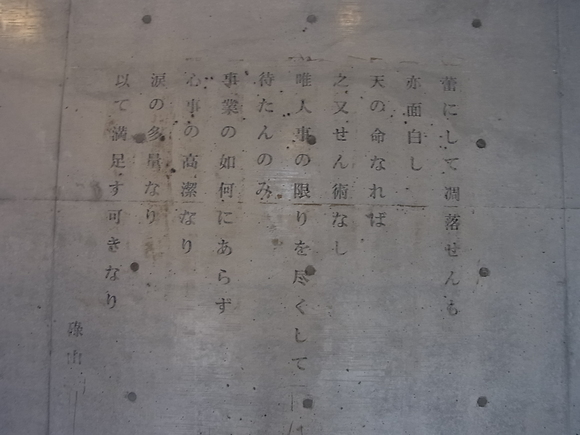 蕾にして凋落せんも
亦面白し
天の命なれば
之又せん術なし
唯人事の限りを尽くして
待たんのみ
事業の如何にあらず
心事の高潔なり
涙の多量なり
以て満足す可きなり